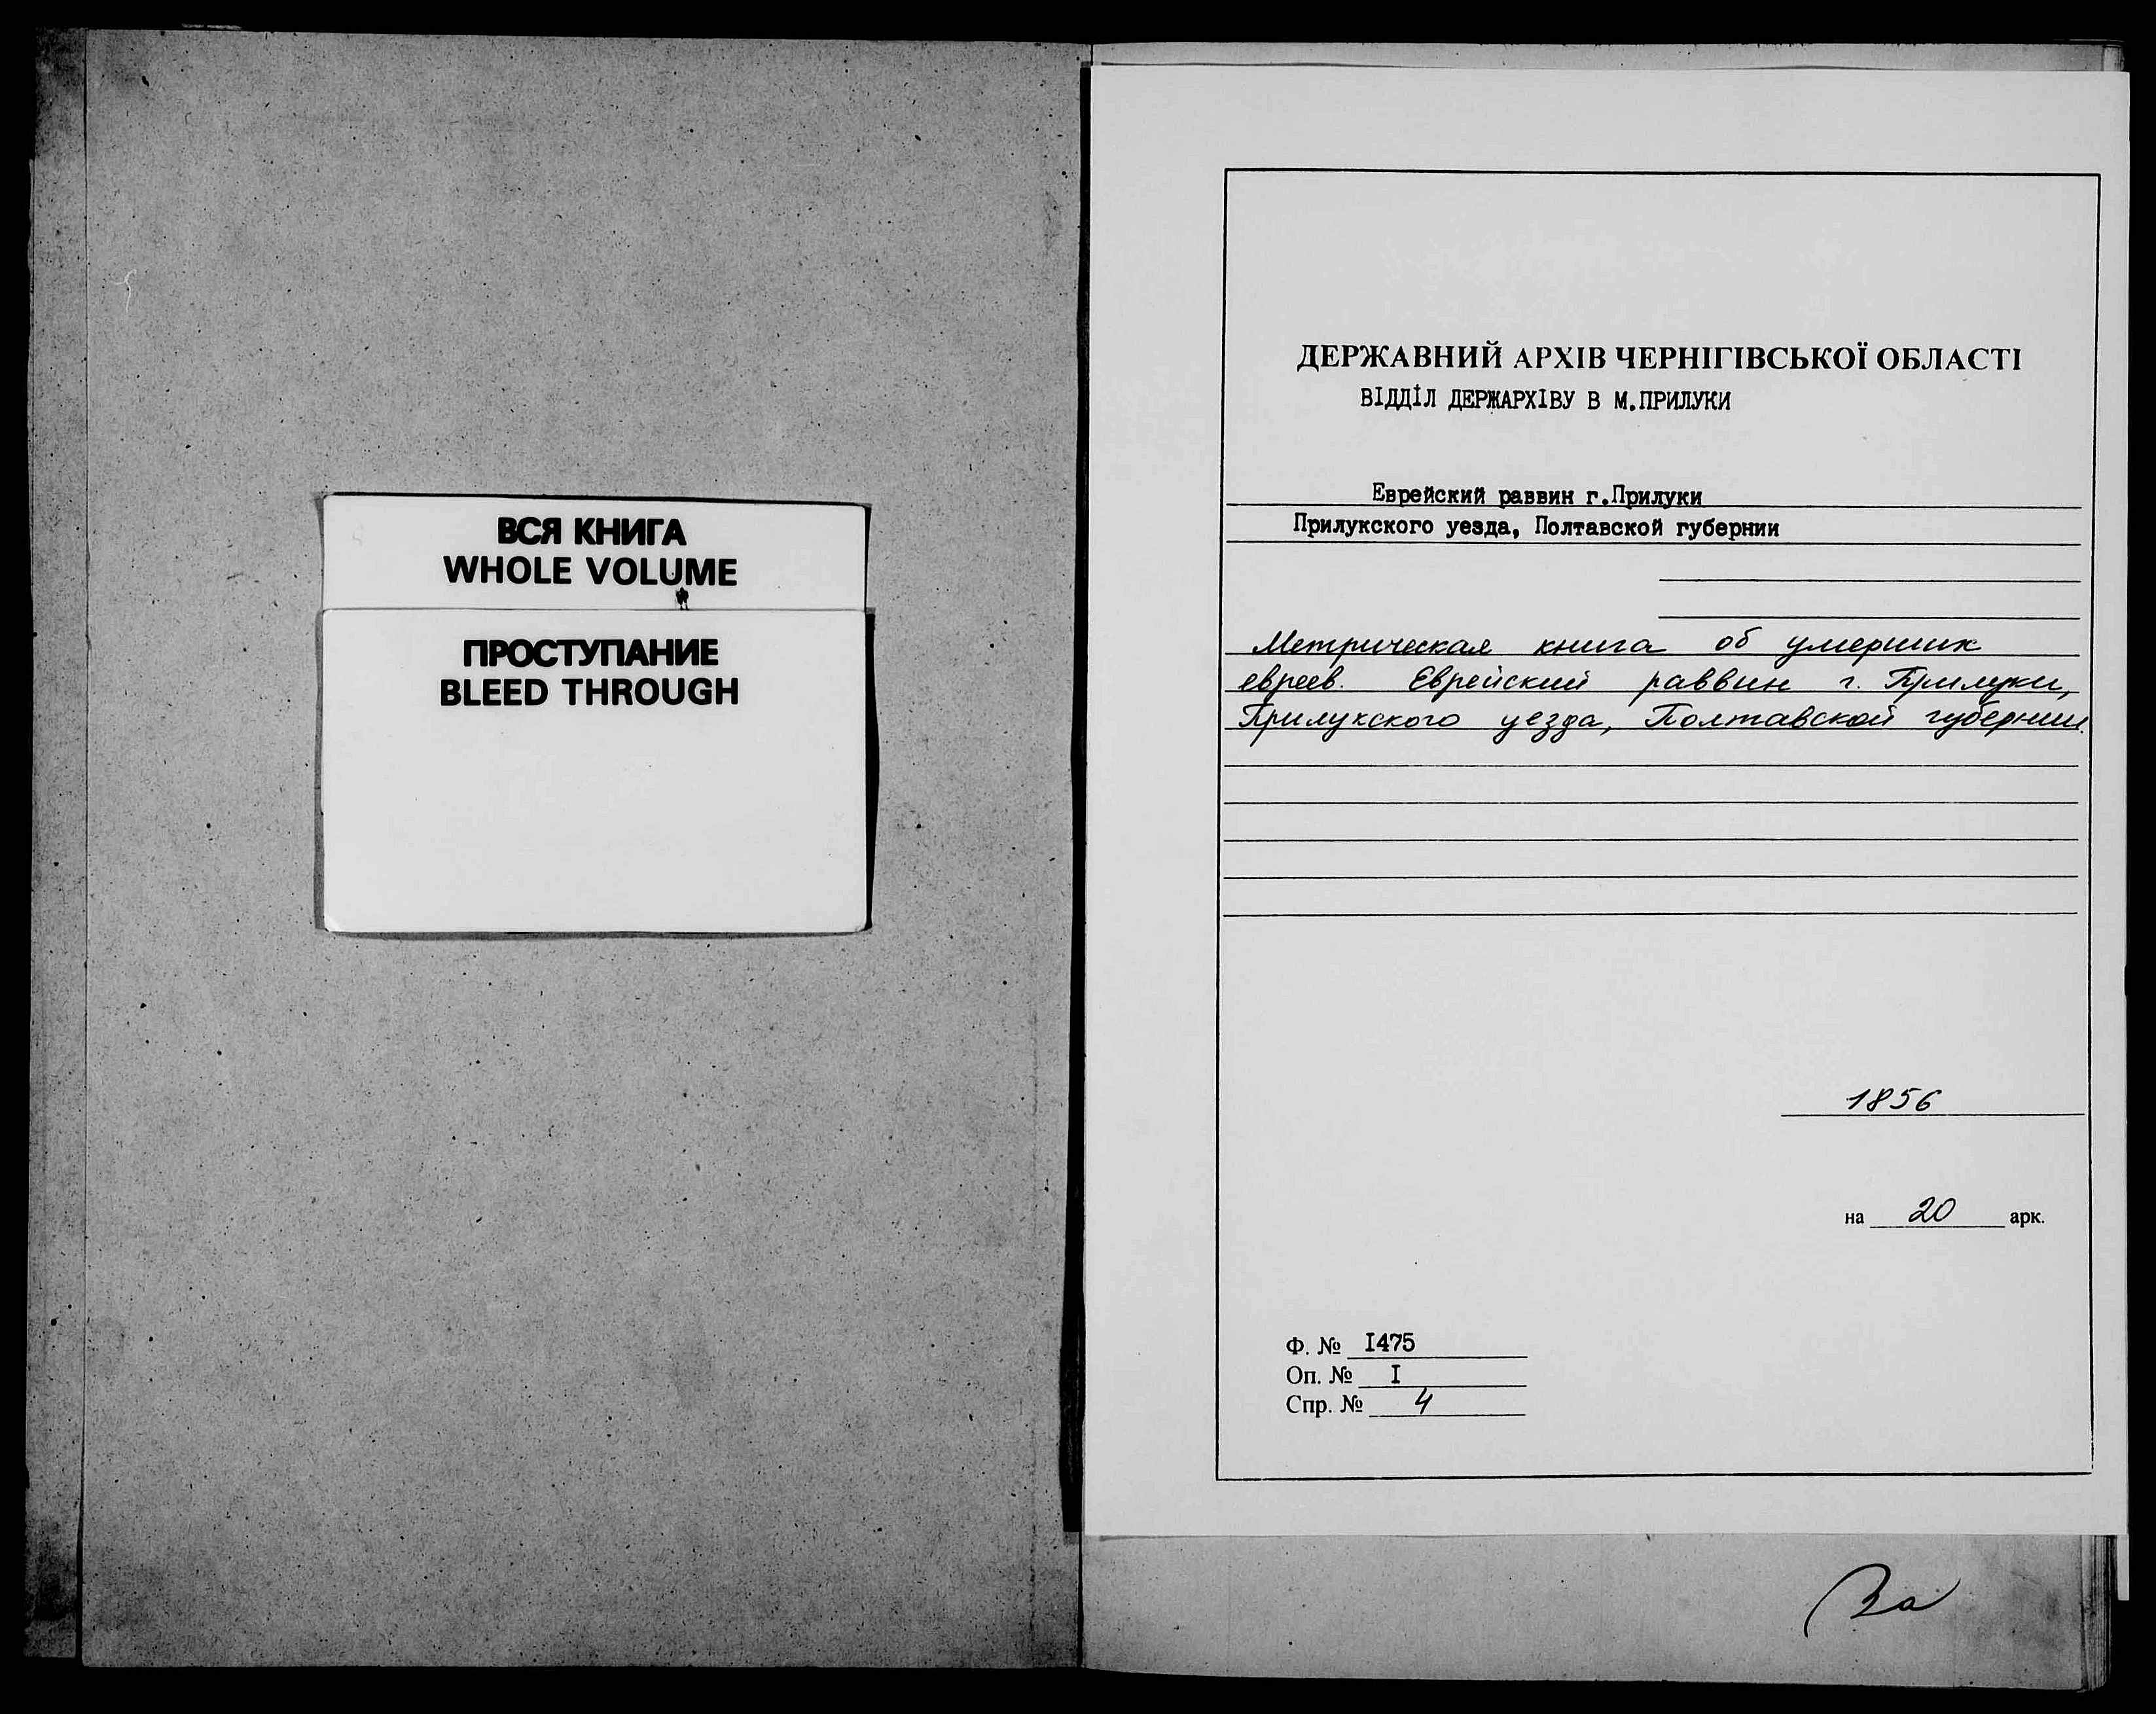 ВСЯ КНИГА
WHOLE VOLUME
ПРОСТУПАНИЕ
BLEED THROUGH
ДЕРЖАВНИЙ АРХІВ ЧЕРНІГІВСЬКОЇ ОБЛАСТІ
ВІДДІЛ ДЕРЖАРХІВУ В М.ПРИЛУКИ
Еврейский раввин г.Прилуки
Прилукского уезда, Полтавской губернии
Метрическая книга об умерших
евреев. Еврейский раввин г. Прилуки,
Прилукского уезда, Полтавской губернии.
1856
на 20 арк.
Ф. № I475
Оп. № I
Спр. № 4